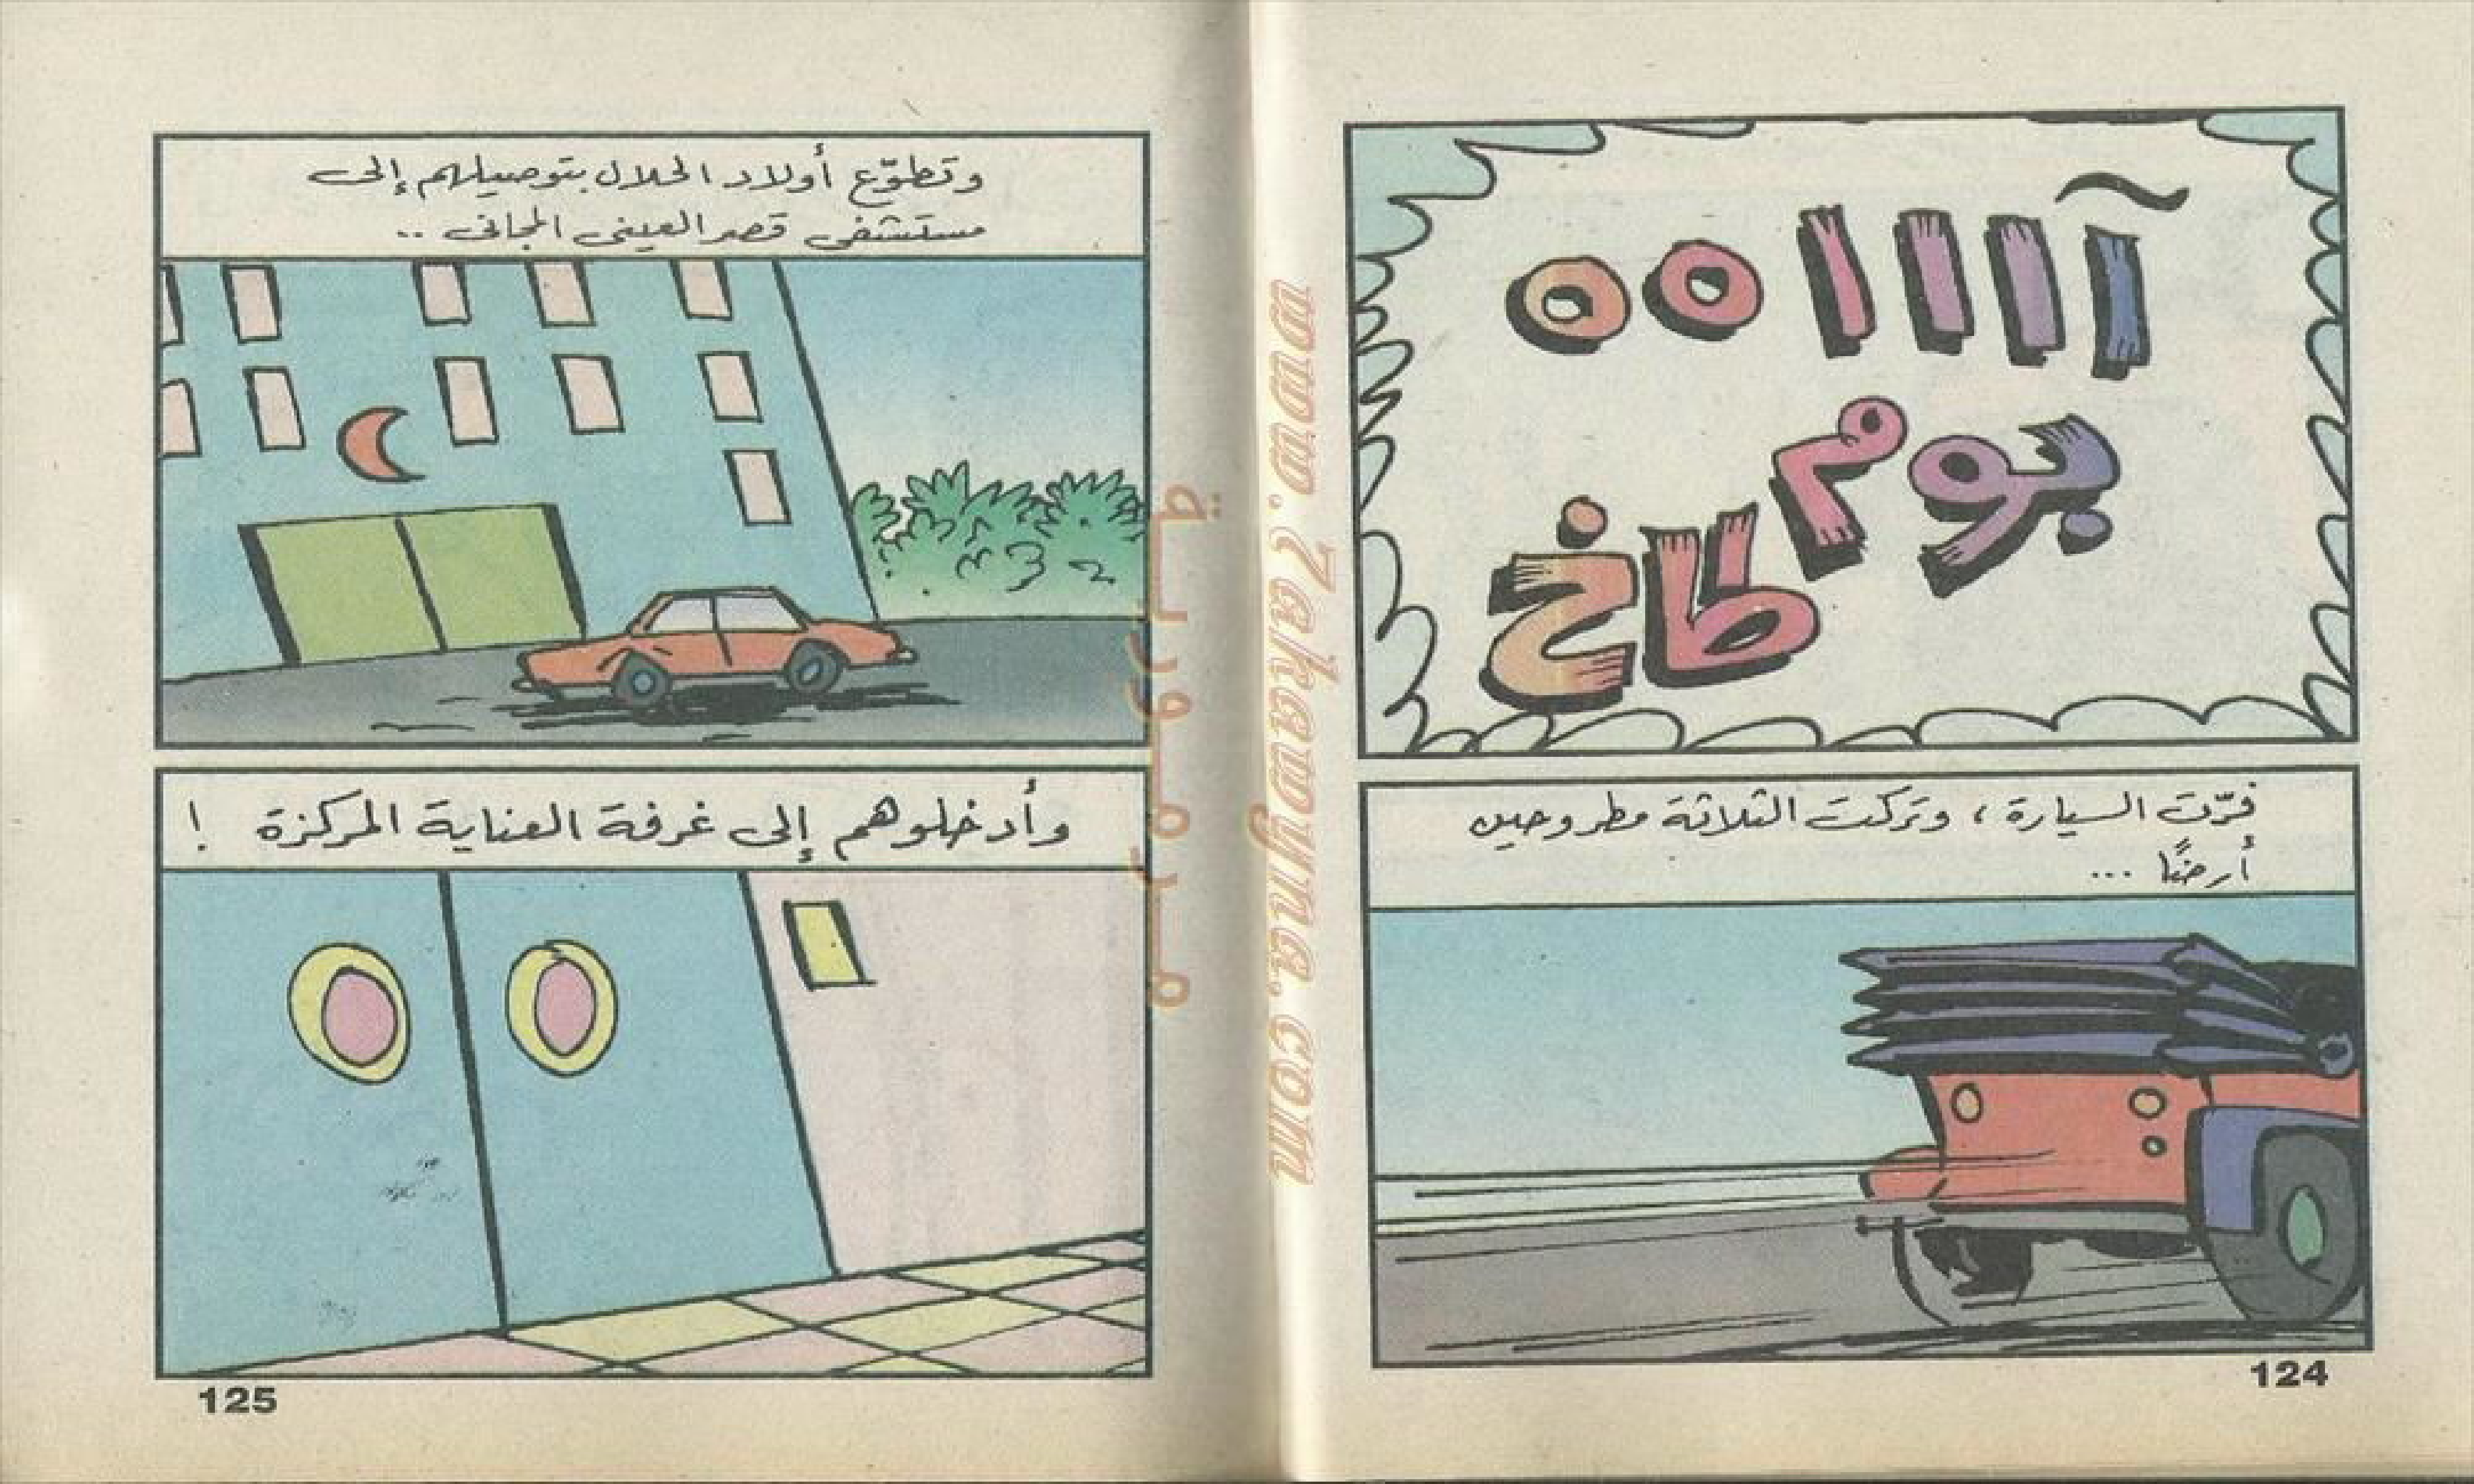 آاااهه
بوم
طاخ
فرّت السيارة ، وتركت الثلاثة مطروحين
أرضًا ...
124
وتطوّع أولاد الحلال بتوصيلهم إلى
مستشفى قصر العينى المجانى ..
وأدخلوهم إلى غرفة العناية المركزة !
125
www.7akawyna.com
مرمورية